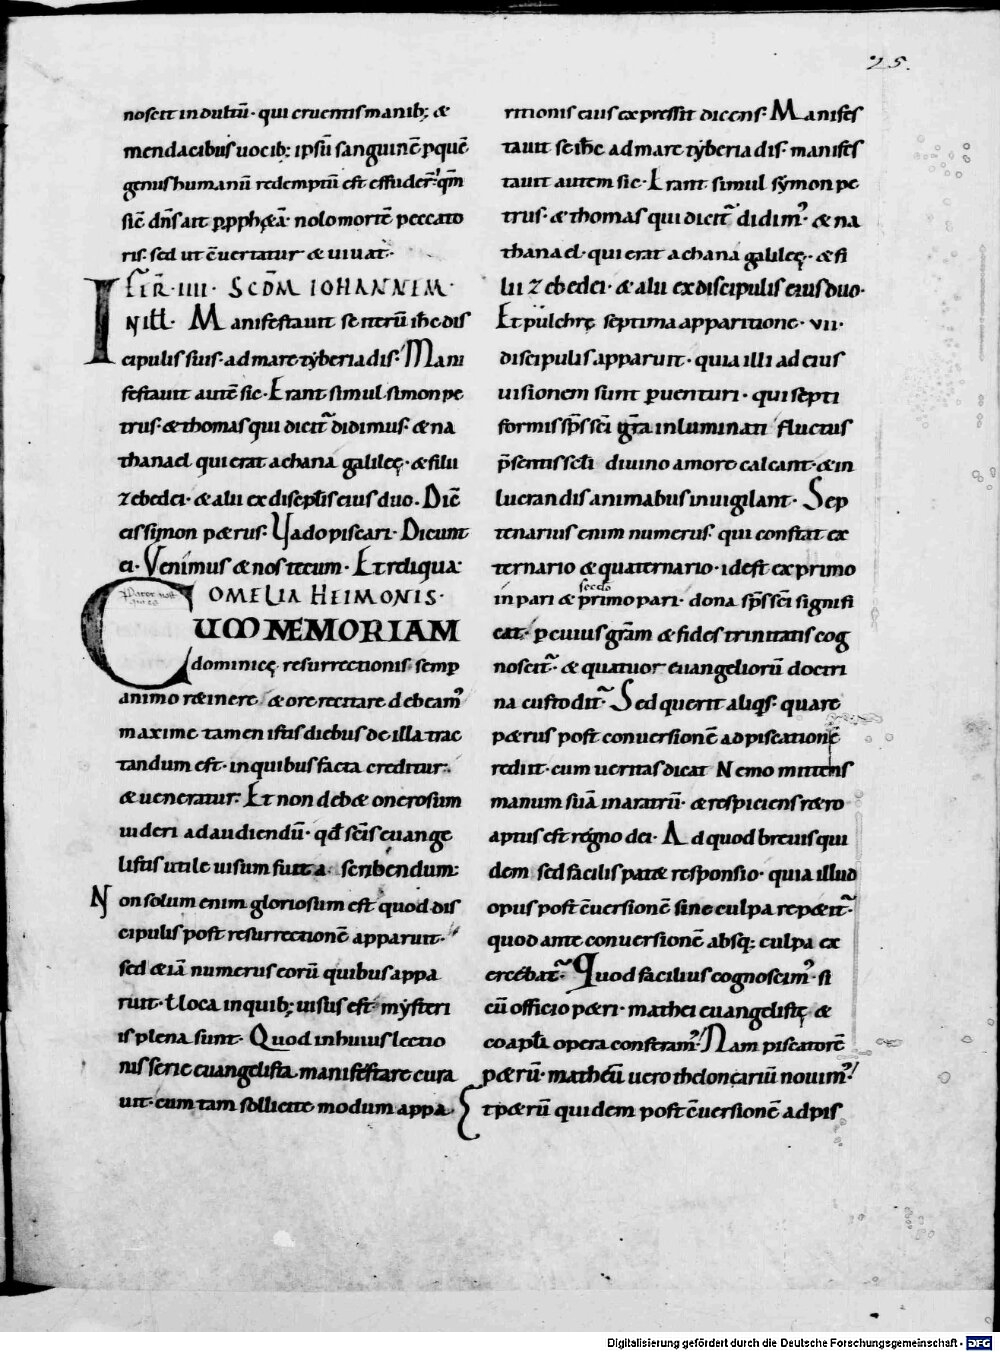 25.
noscit indubiū· qui cruentis manib; &
mendacibus uocib; ipsū sanguinē p quē
genus humanū redemptū est effuder̄· qm̄
sic̄ dn̄s ait p ꝓph&ā· nolo mortē peccato
ris· sed ut c̄uertatur & uiuat·
FER̄· IIII· SCDM̄ IOHANNEM·
IN ill̄· Manifestauit se iterū ih̄c dis
cipulis suis· ad mare tyberiadis· Mani
festauit autē sic· Erant simul simon pe
trus· & thomas qui dicit̄ didimus· & na
thanael qui erat a chana galileę· & filii
zebedei· & alii ex discipl̄is eius duo· Dic̄
eis simon p&rus· Uado piscari· Dicunt
ei· Venimus & nos tecum· Et reliqua·
OMELIA HEIMONIS·
CUM MEMORIAM
dominicę resurrectionis semp
animo r&inere & ore recitare debeam᾽
maxime tamen istis diebus de illa trac
tandum est· in quibus facta creditur·
& ueneratur· Et non deb& onerosum
uideri ad audiendū· qđ sc̄is euange
listis utile uisum fuit a scribendum:
Non solum enim gloriosum est quod dis
cipulis post resurrectionē apparuit·
sed & iā numerus eorū quibus appa
ruit· ł loca in quib; uisus est· mysteri
is plena sunt· Quod in huius lectio
nis serie euangelista manifestare cura
uit· cum tam sollicite modum appa·
ritionis eius expressit dicens· Manifes
tauit se ih̄c ad mare tyberiadis· manifes
tauit autem sic· Erant simul symon pe
trus· & thomas qui dicit̄ didim᾽· & na
thanael· qui erat a chana galileę· & fi
lii zebedei· & alii ex discipulis eius duo·
Et pulchrę septima apparitione· vii·
discipulis apparuit· quia illi ad eius
uisionem sunt puenturi· qui septi
formis sp̄s sc̄i grā inluminati fluctus
p̄sentis scl̄i diuino amore calcant· & in
lucrandis animabus inuigilant· Sep
tenarius enim numerus· qui constat ex
ternario & quaternario· id est ex primo
in pari & primo pari· dona sp̄s sc̄i signifi
cat· p cuius grām & fides trinitatis cog
noscit̄· & quatuor euangeliorū doctri
na custodit̄· Sed querit aliqs· quare
p&rus post conuersionē ad piscationē
rediit· cum ueritas dicat Nemo mittens
manum suā in aratrū· & respiciens r&ro
aptus est regno dei· Ad quod breuis qui
dem sed facilis pat& responsio· quia illud
opus post c̄uersionē sine culpa rep&iit̄·
quod ante conuersionē absq; culpa ex
ercebat̄· Quod facilius cognoscim᾽· si
cū officio p&ri· mathei euangelistę &
coapl̄i opera conferam᾽· Nam piscatorē
p&rū· matheū uero theloneariū nouim᾽·
Et p&rū quidem post c̄uersionē ad pis
Digitalisierung gefördert durch die Deutsche Forschungsgemeinschaft - DFG